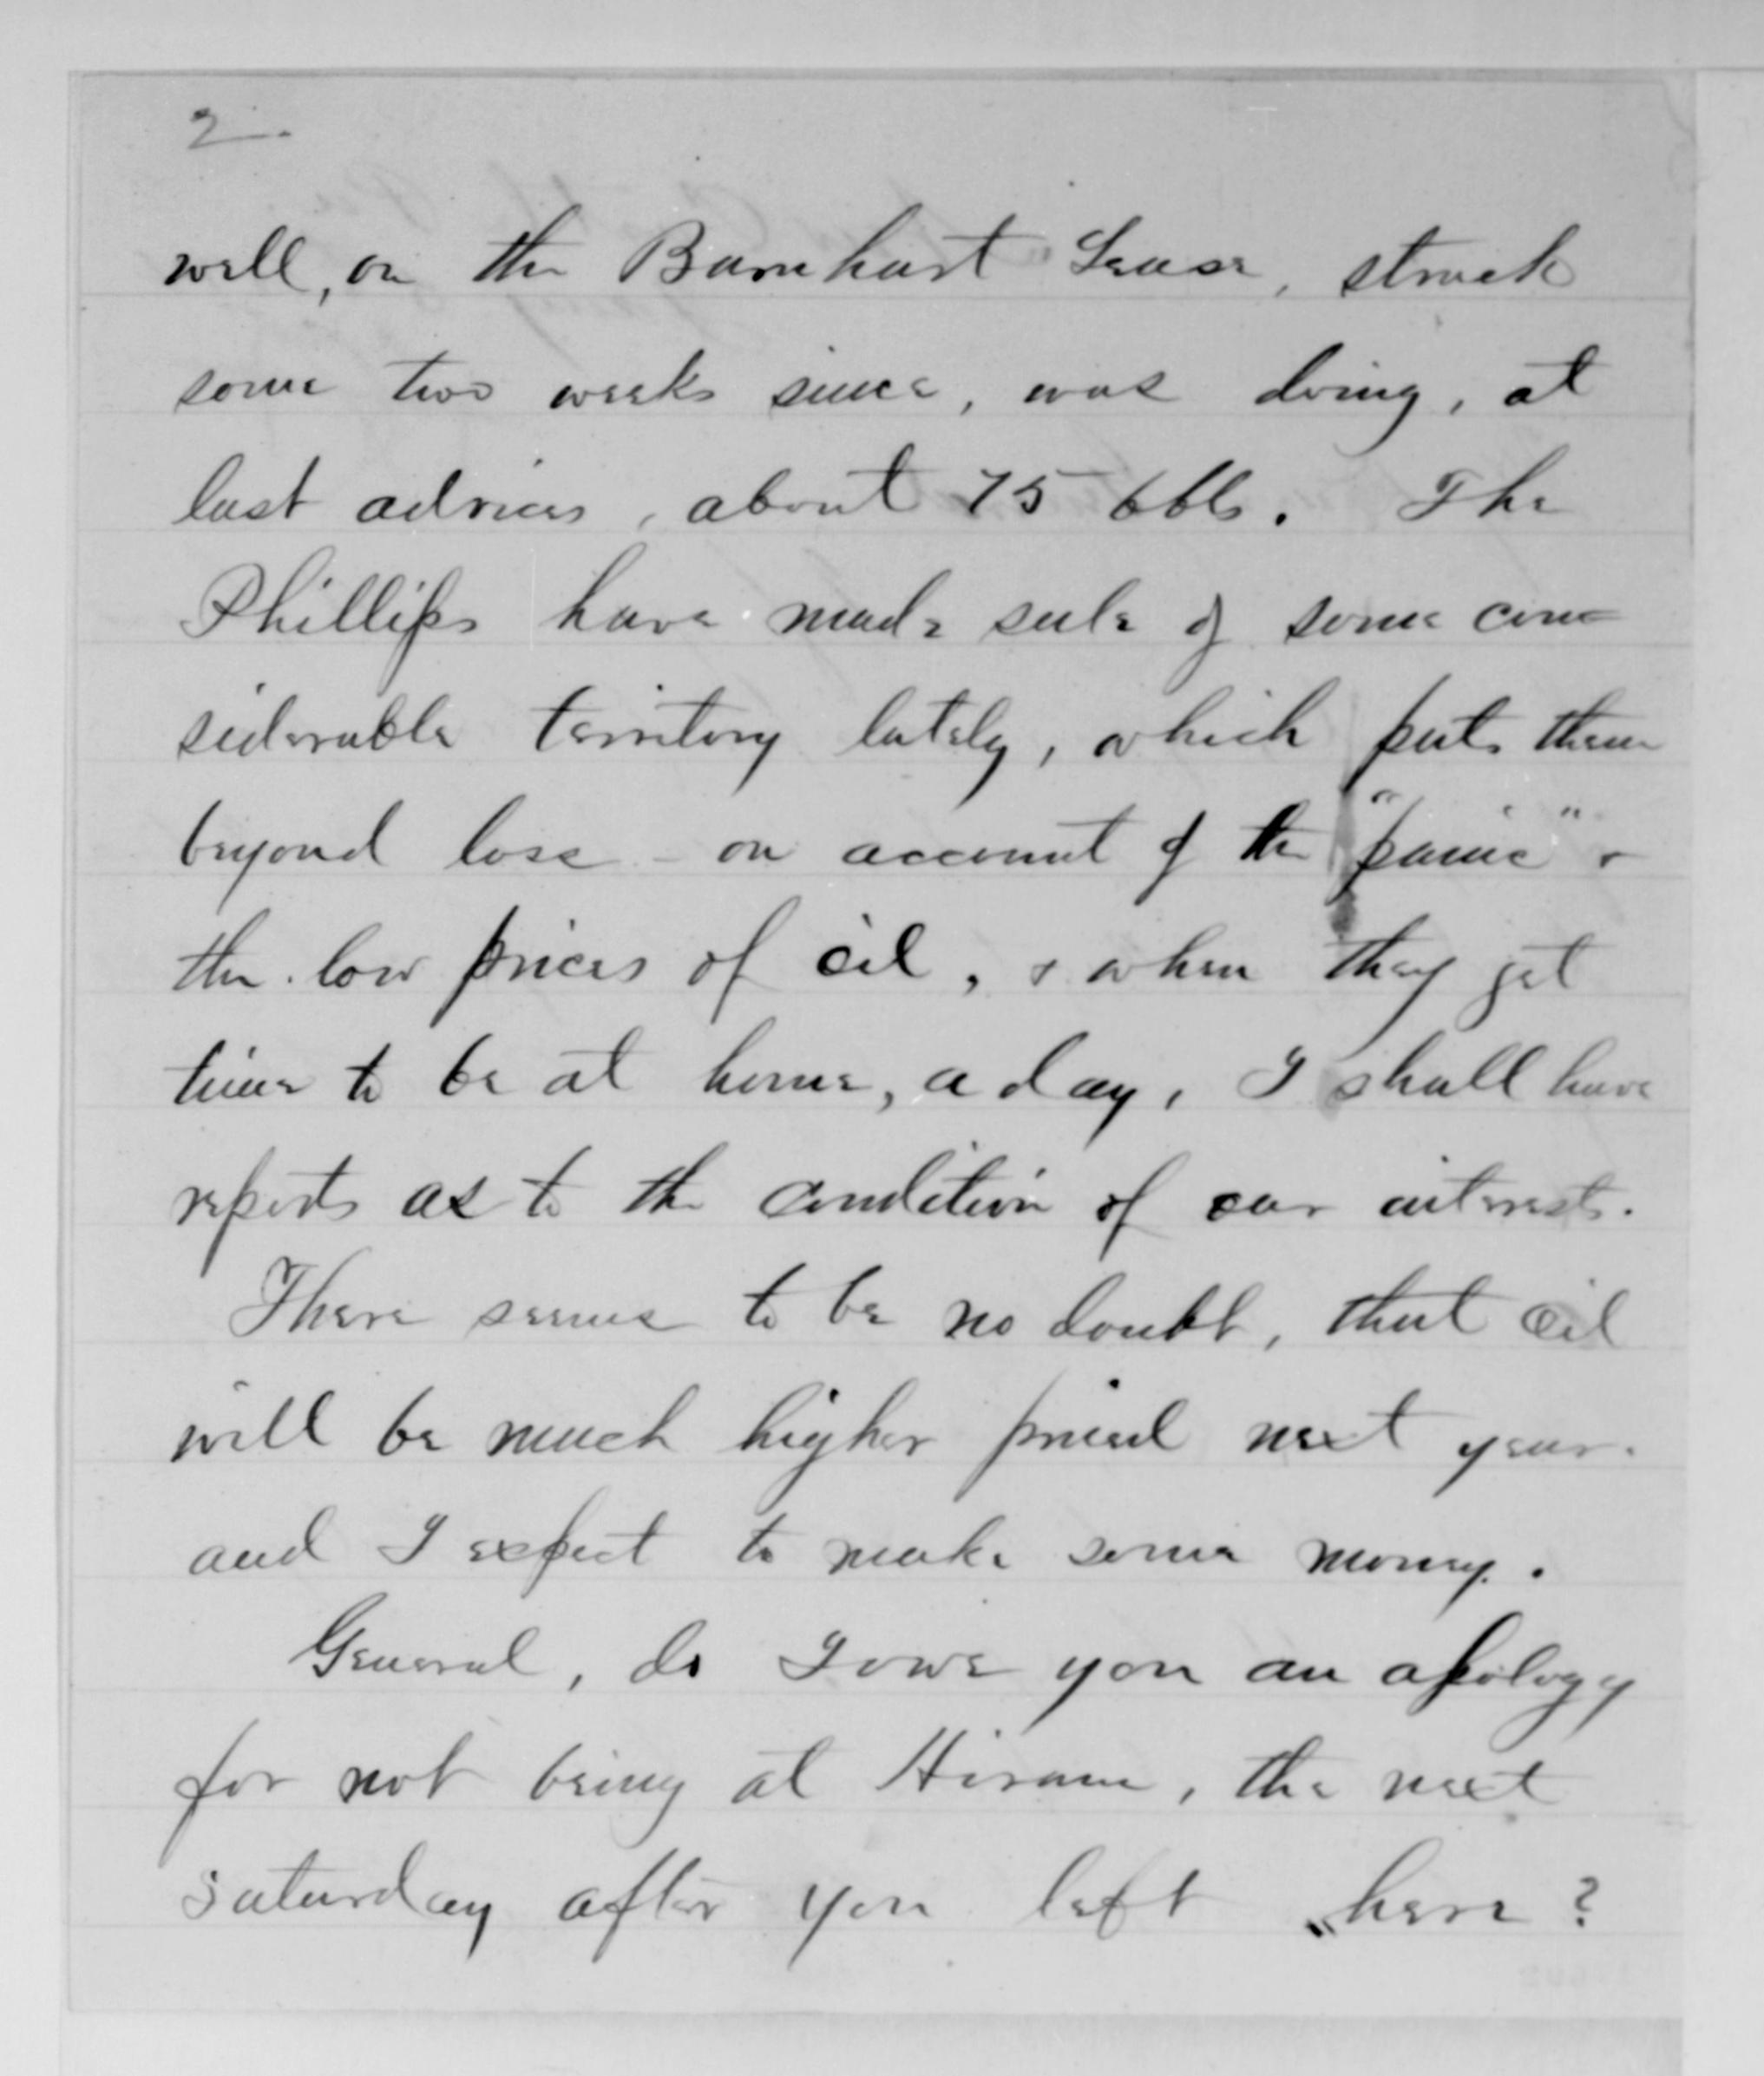 2.
well, on the Barnhart Lease, struck
some two weeks since, was doing, at
last advices, about 75 bbls. The
Phillips have made sale of some con=
siderable territory lately, which puts them
beyond loss - on account of the "panic" &
the low prices of oil, & when they get
time to be at home, a day, I shall have
reports as to the condition of our interests.
There seems to be no doubt, that oil
will be much higher priced next year.
and I expect to make some money.
General, do I owe you an apology
for not being at Hiram, the next
Saturday after you left here?